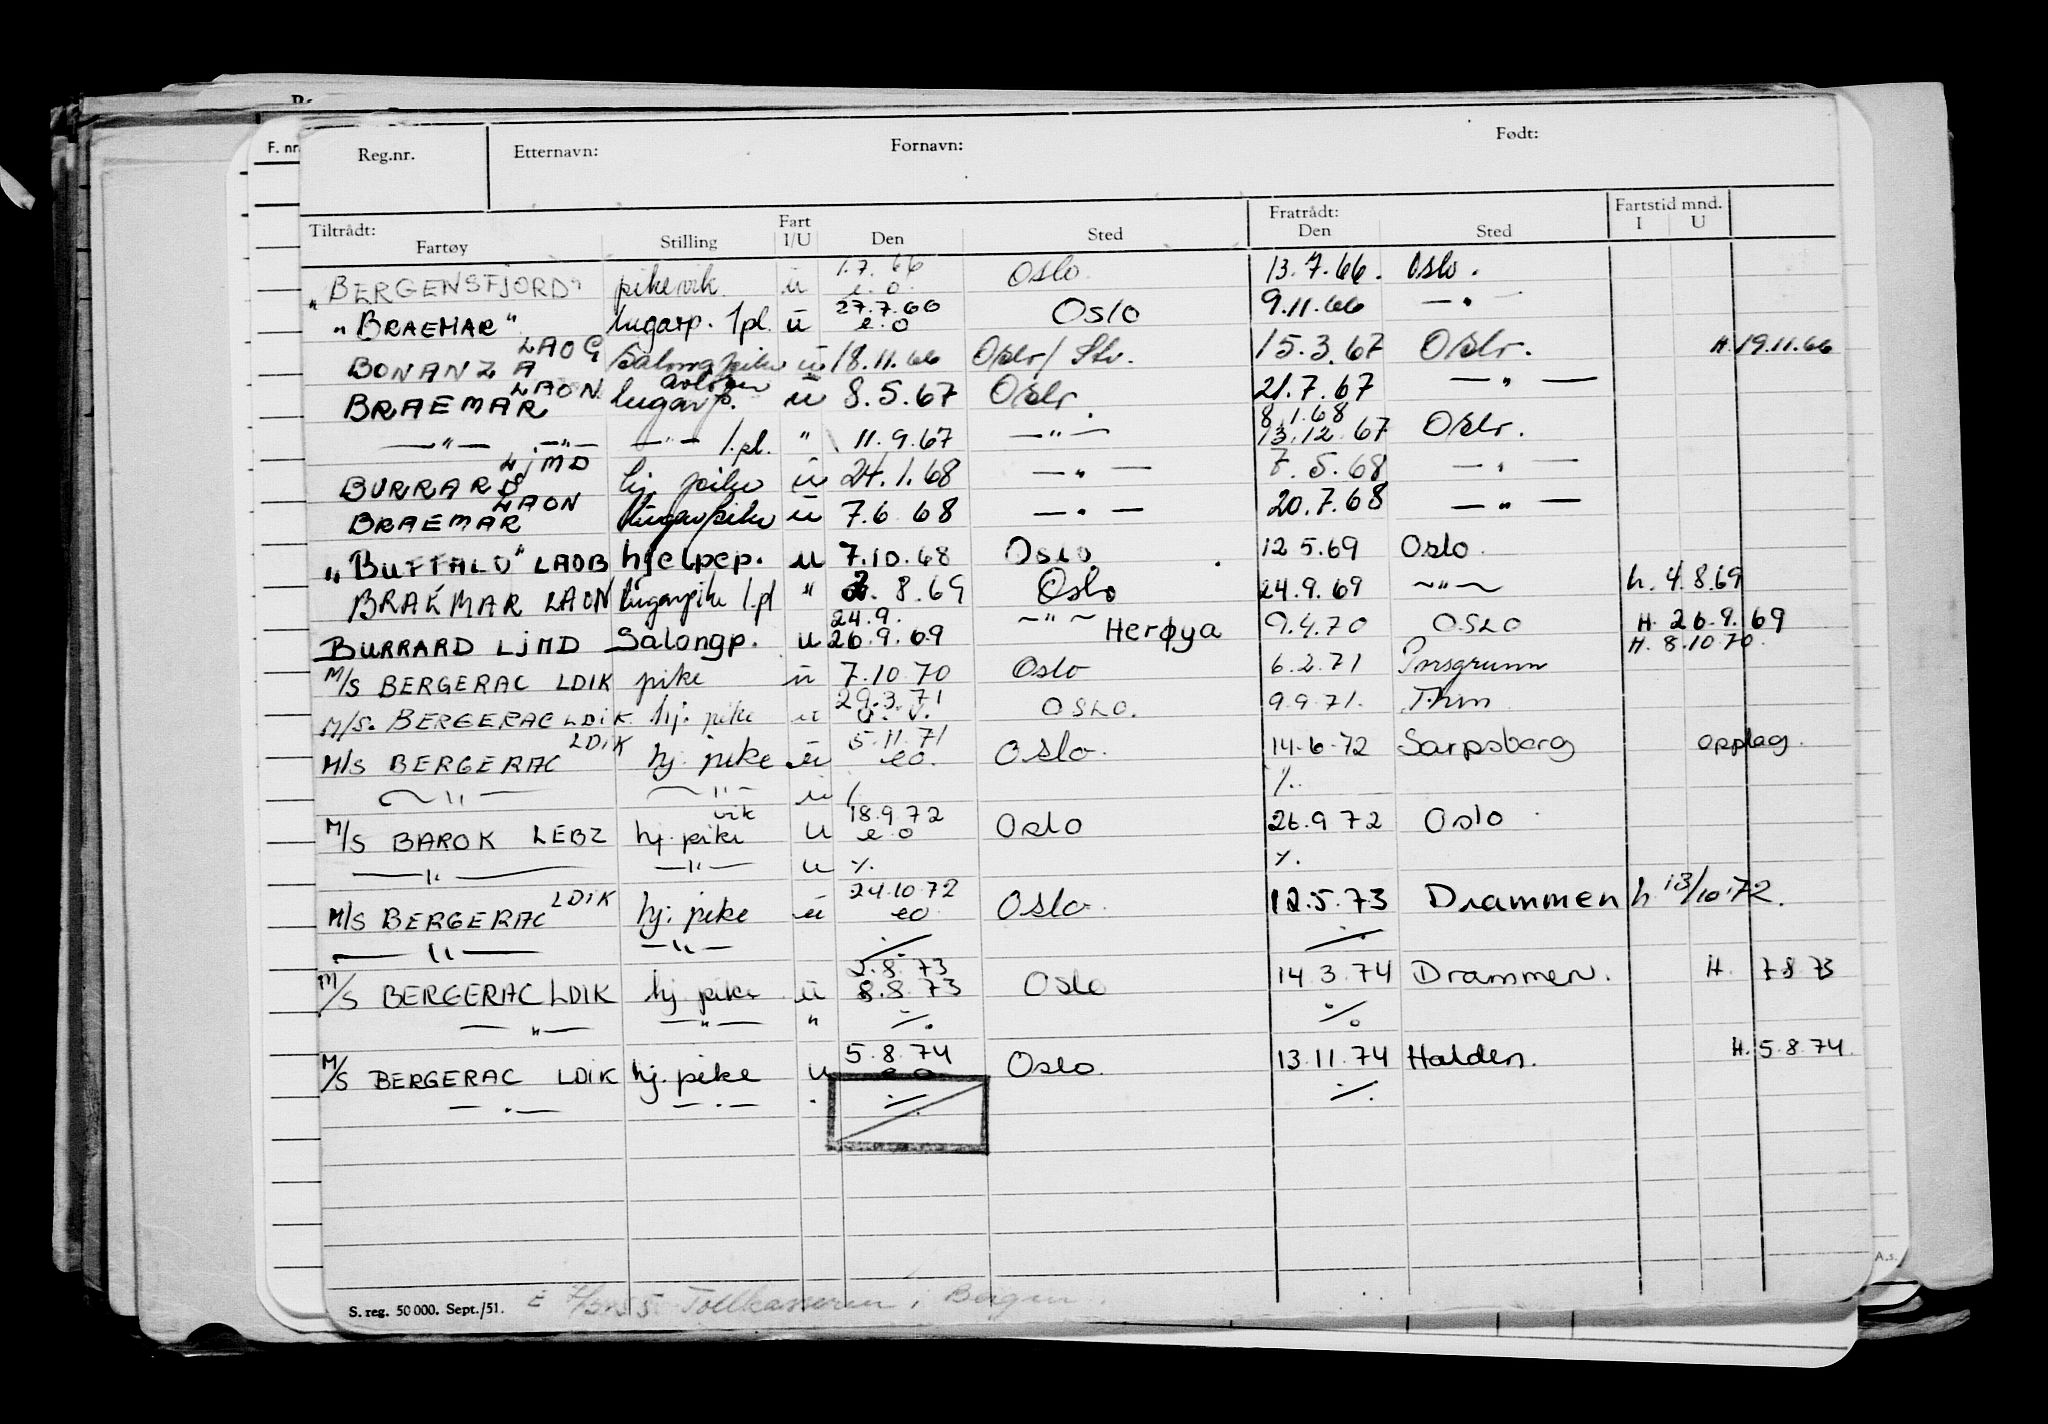 F. nr.
Reg.nr. Etternavn: Fornavn: Født:
Tiltrådt: Fartøy Stilling Fart I/U Den Sted Fratrådt: Den Sted Fartstid mnd. I U
"BERGENSFJORD" pikevik u 1.7.66 e.o. Oslo 13.7.66. Oslo.
"BRAEMAR" lugarp. 1pl. u 27.7.66 e.o Oslo 9.11.66 —"—
BONANZA LAOG Salongpike u 18.11.66 Oslo/ Stv. 15.3.67 Oslo. H. 19.11.66
BRAEMAR LAON lugarp. avløser u 8.5.67 Oslo. 21.7.67 —"—
—"— —"— —"— 1.pl. " 11.9.67 —"— 8.1.68 13.12.67 Oslo.
BURRARD LJMD hj. pike u 24.1.68 —"— 7.5.68 —"—
BRAEMAR LAON lugarpike u 7.6.68 —"— 20.7.68 —"—
"BUFFALO" LAOB hjelpep. u 7.10.68 Oslo. 12 5.69 Oslo.
BRAEMAR LAON lugarpike 1.pl " 2.8.69 Oslo 24.9.69 —"— h. 4.8.69
BURRARD LJMD Salongp. u 24.9. 26.9.69 —"— Herøya 9.4.70 OSLO H. 26.9.69
M/S BERGERAC LDIK pike u 7.10.70 Oslo 6.2.71 Porsgrunn H. 8.10.70.
M/S. BERGERAC LDIK hj. pike u 29.3.71 OSLO. 9.9.71. Thm
M/S BERGERAC LDIK hj. pike u 5.11.71 eo. Oslo. 14.6.72 Sarpsborg opplag.
—"— —"— u ·/. ·/.
M/S BAROK LEBZ hj. pike vik u 18.9.72 e o Oslo 26.9 72 Oslo
—"— —"— u ·/. ·/.
M/S BERGERAC LDIK hj. pike u 24.10.72 eo. Oslo. 12.5.73 Drammen h. 13/10.72.
—"— —"— ·/. ·/.
M/S BERGERAC LDIK hj. pike u 5.8.73 8.8.73 Oslo 14.3.74 Drammen. H. 7 8 73
—"— —"— " ·/. ·/.
M/S BERGERAC LDIK hj. pike u 5.8.74 e o Oslo. 13.11.74 Halden. H. 5.8.74.
—"— —"— " ·/. ·/.
S. reg. 50 000. Sept./51. Tollkasserer i Bergen.
A.s.